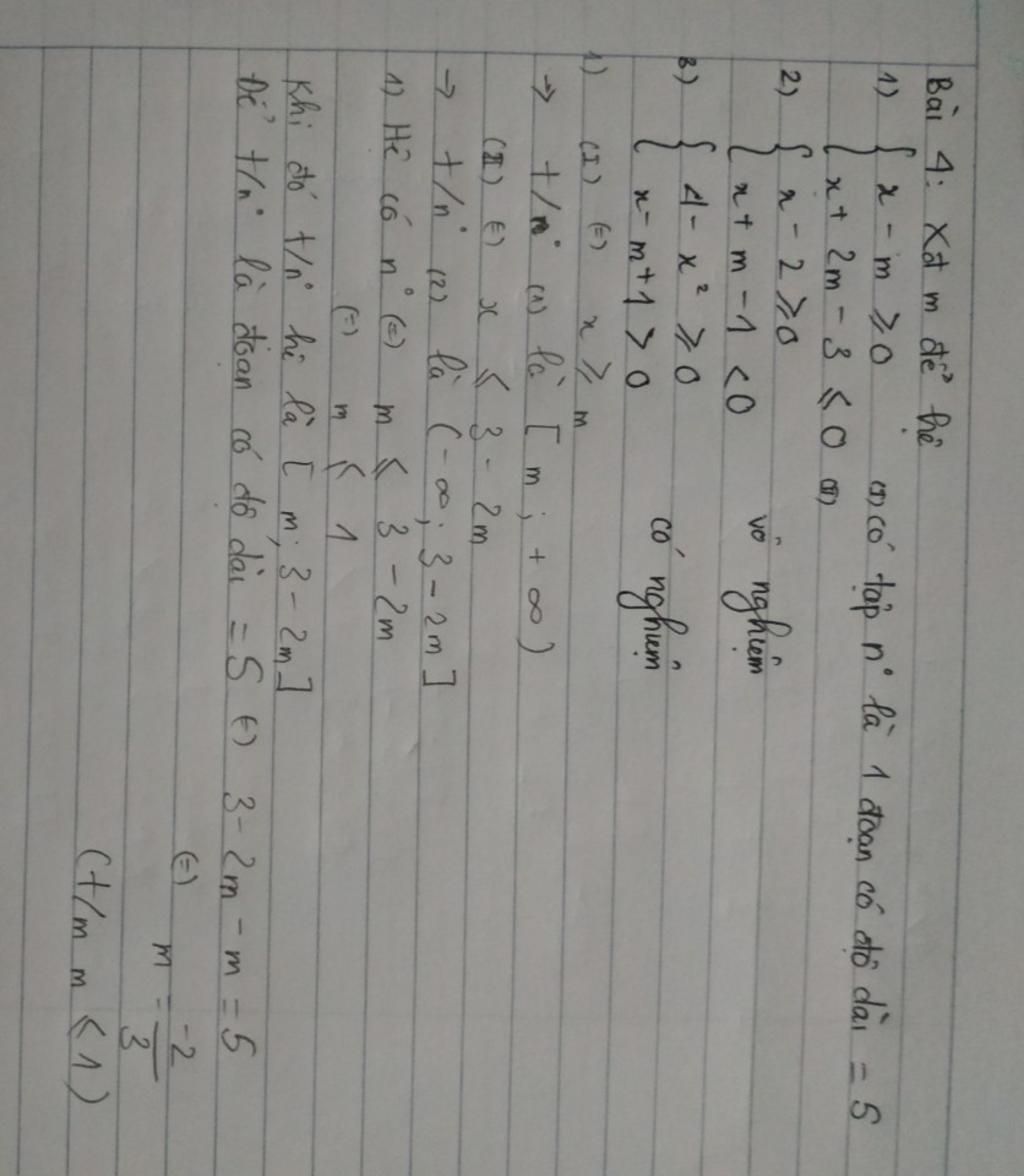 Bài 4: Xđ m để hệ
1) { x - m ⩾ 0 (I) có tập n° là 1 đoạn có độ dài = 5
{ x + 2m - 3 ⩽ 0 (II)
2) { x - 2 ⩾ 0
{ x + m - 1 < 0 vô nghiệm
3) { 4 - x² ⩾ 0
{ x - m + 1 > 0 có nghiệm
1) (I) (=) x ⩾ m
→ t/n° (1) là [ m ; + ∞ )
(II) (=) x ⩽ 3 - 2m
→ t/n° (2) là ( - ∞ ; 3 - 2m ]
1) Hệ có n° (=) m ⩽ 3 - 2m
(=) m ⩽ 1
Khi đó t/n° hệ là [ m ; 3 - 2m ]
Để t/n° là đoạn có độ dài = 5 (=) 3 - 2m - m = 5
(=) m = -2/3
(t/m m ⩽ 1)